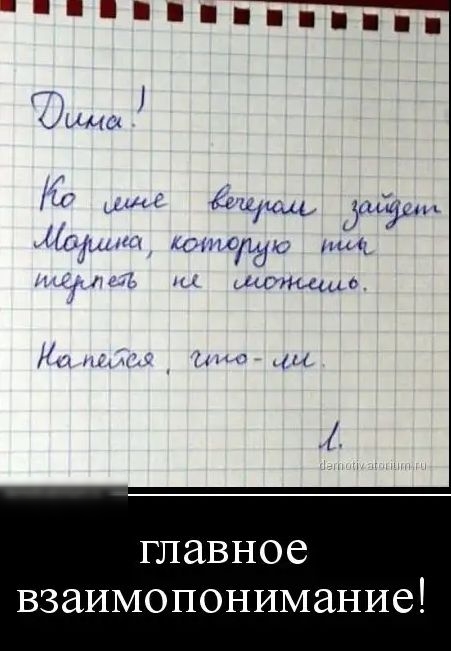 Дима!
Ко мне вечером зайдет
Марина, которую ты
терпеть не можешь.
Напейся, что-ли.
Л.
demotivatorium.ru
главное
взаимопонимание!